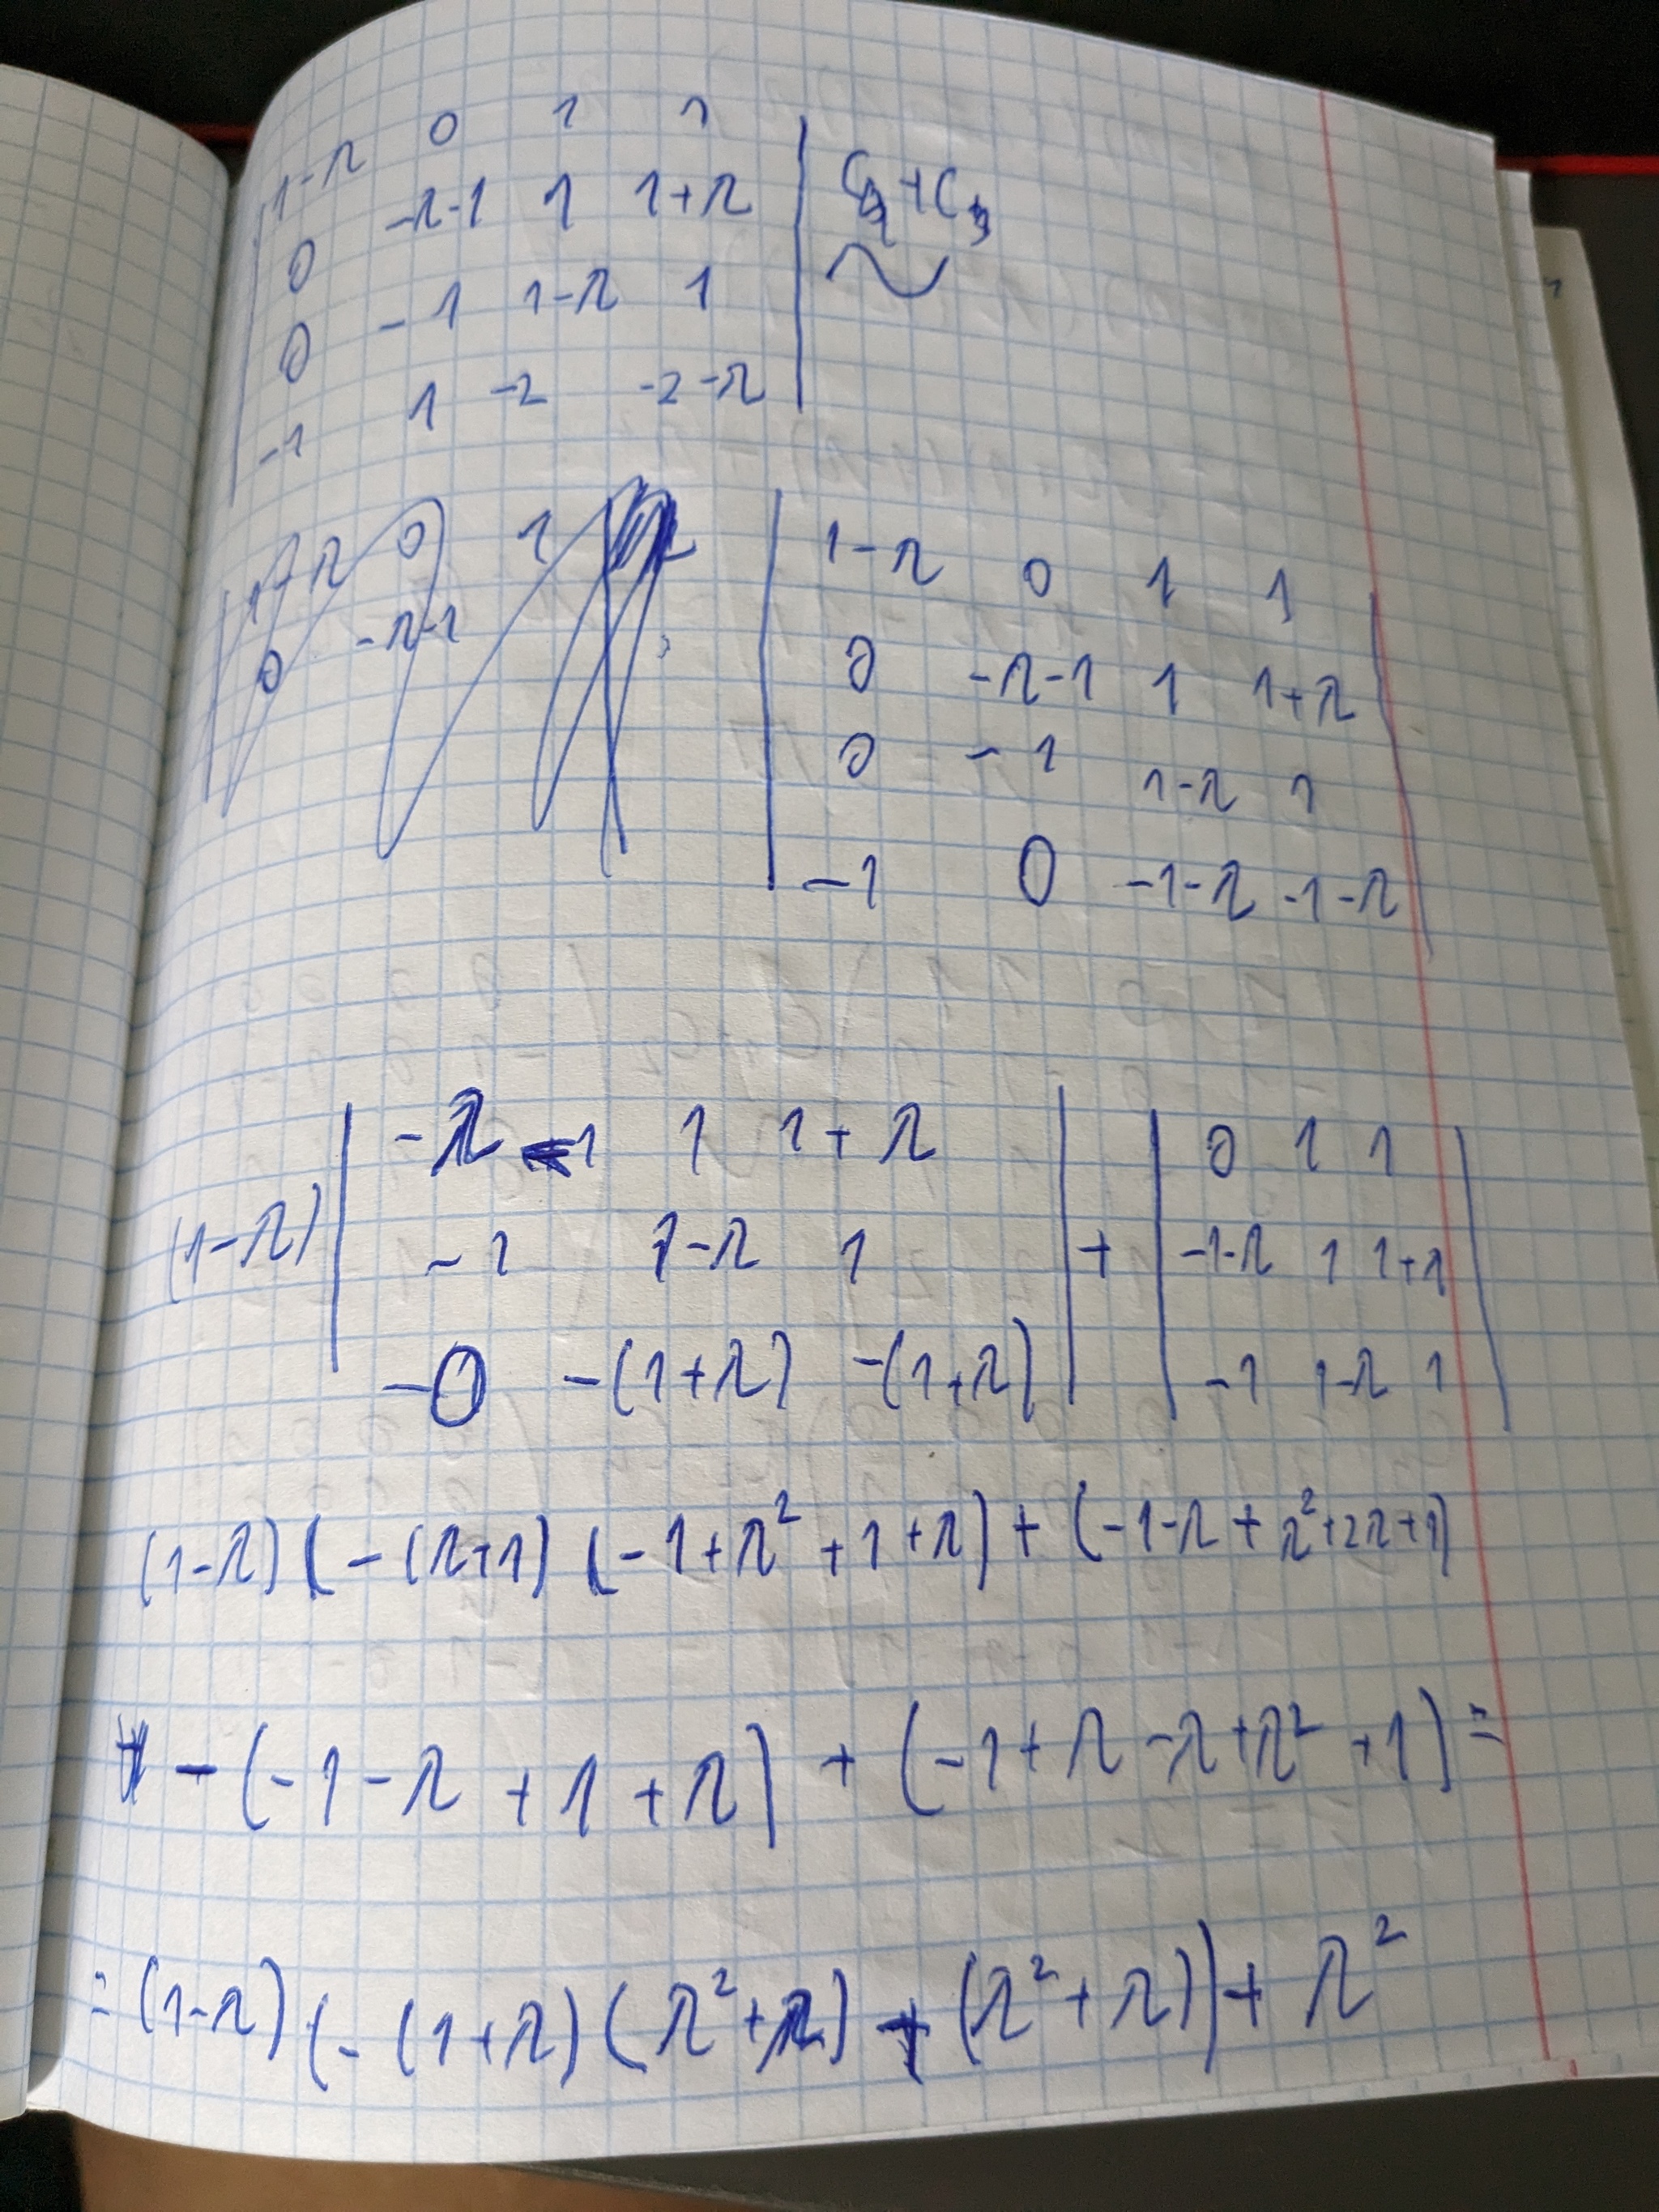 1-λ 0 1 1
0 -λ-1 1 1+λ
0 -1 1-λ 1
-1 1 -2 -2-λ
1-λ 0 1
0 -λ-1
1-λ 0 1 1
0 -λ-1 1 1+λ
0 -1 1-λ 1
-1 0 -1-λ -1-λ
(1-λ) | -λ-1 1 1+λ | + | 0 1 1 |
| -1 1-λ 1 | | -1-λ 1 1+λ |
| -0 -(1+λ) -(1+λ) | | -1 1-λ 1 |
(1-λ) (-(λ+1) (-1+λ²+1+λ) + (-1-λ+λ²+2λ+1)
-(-1-λ+1+λ) + (-1+λ-λ+λ²+1) =
= (1-λ) (-(1+λ)(λ²+λ) + (λ²+λ)) + λ²